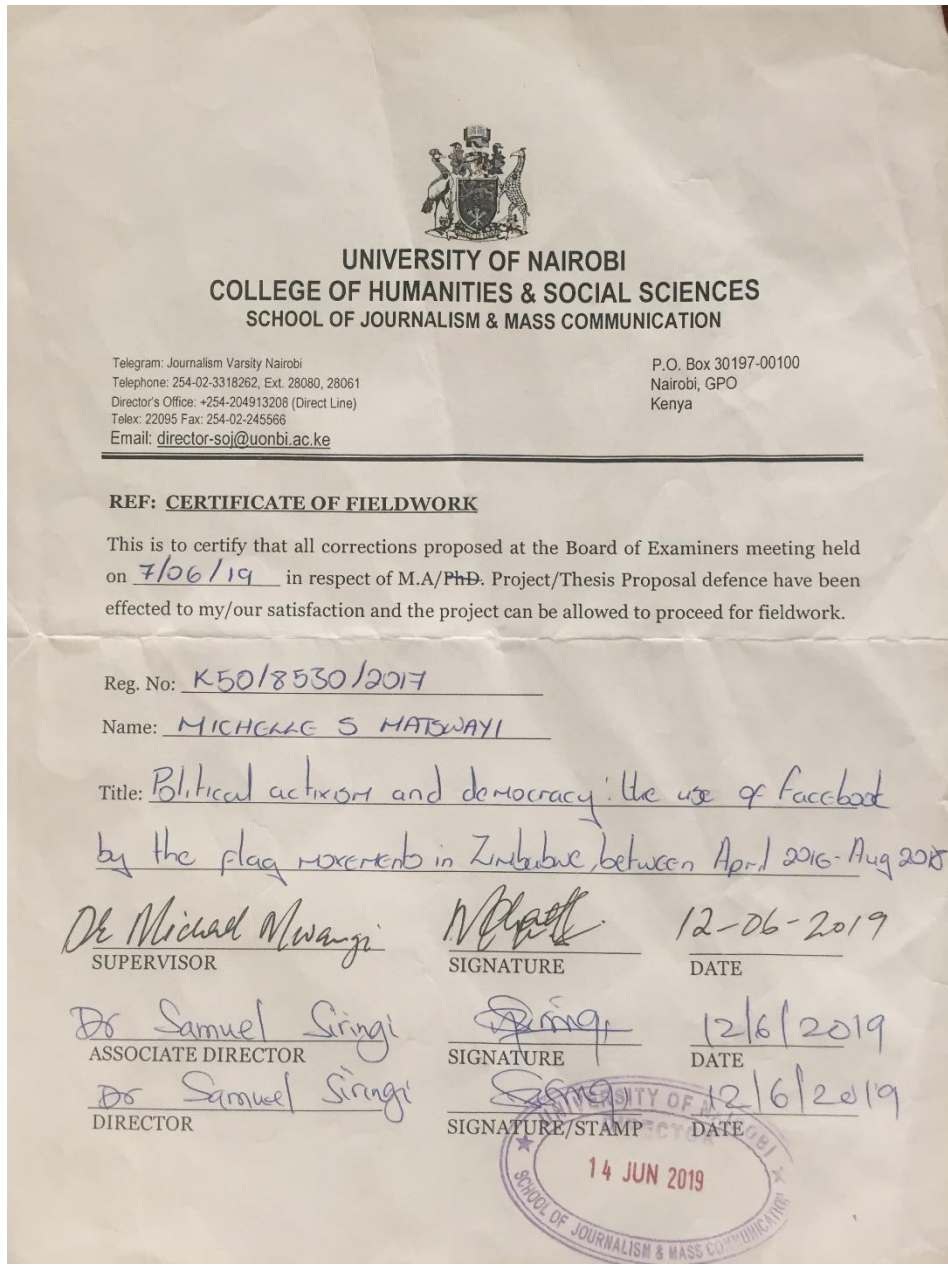 UNIVERSITY OF NAIROBI
COLLEGE OF HUMANITIES & SOCIAL SCIENCES
SCHOOL OF JOURNALISM & MASS COMMUNICATION
Telegram: Journalism Varsity Nairobi
Telephone: 254-02-3318262, Ext. 28080, 28061
Director's Office: +254-204913208 (Direct Line)
Telex: 22095 Fax: 254-02-245566
Email: director-soj@uonbi.ac.ke
P.O. Box 30197-00100
Nairobi, GPO
Kenya
REF: CERTIFICATE OF FIELDWORK
This is to certify that all corrections proposed at the Board of Examiners meeting held
on 7/06/19 in respect of M.A/PhD. Project/Thesis Proposal defence have been
effected to my/our satisfaction and the project can be allowed to proceed for fieldwork.
Reg. No: K50/8530/2017
Name: MICHELLE S MATSWAYI
Title: Political activism and democracy: the use of Facebook
by the flag movement in Zimbabwe, between April 2016- Aug 2018
Dr Michael Mwangi 12-06-2019
SUPERVISOR SIGNATURE DATE
Dr Samuel Siringi Siringi 12/6/2019
ASSOCIATE DIRECTOR SIGNATURE DATE
Dr Samuel Siringi 12/6/2019
DIRECTOR SIGNATURE/STAMP DATE
UNIVERSITY OF NAIROBI
DIRECTOR
14 JUN 2019
SCHOOL OF JOURNALISM & MASS COMMUNICATION